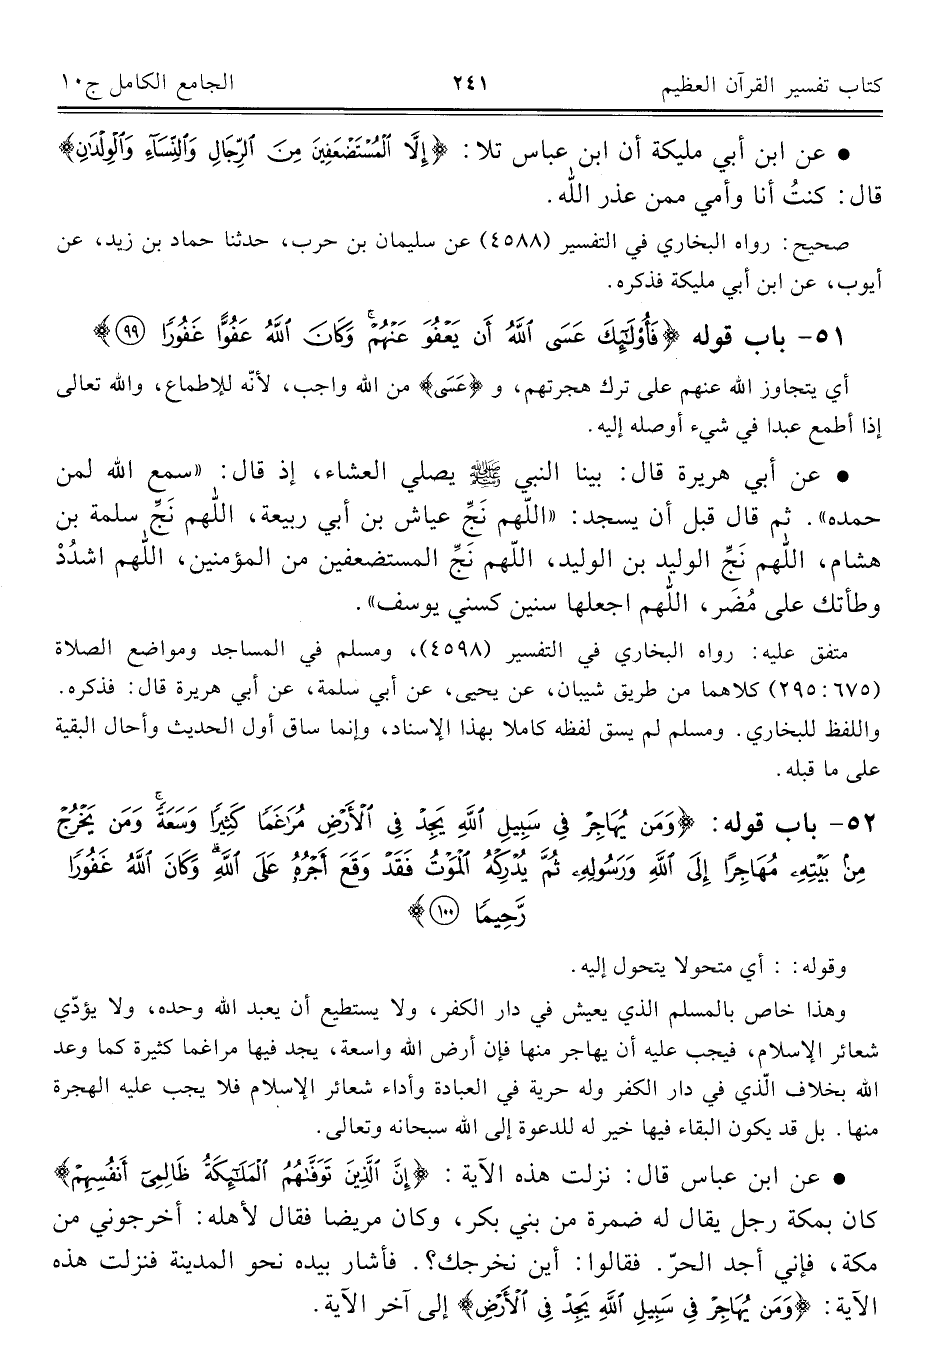 كتاب تفسير القرآن العظيم ٢٤١ الجامع الكامل ج١٠
• عن ابن أبي مليكة أن ابن عباس تلا: ﴿إِلَّا الْمُسْتَضْعَفِينَ مِنَ الرِّجَالِ وَالنِّسَاءِ وَالْوِلْدَانِ﴾
قال: كنتُ أنا وأمي ممن عذر الله.
صحيح: رواه البخاري في التفسير (٤٥٨٨) عن سليمان بن حرب، حدثنا حماد بن زيد، عن
أيوب، عن ابن أبي مليكة فذكره.
٥١- باب قوله ﴿فَأُوْلَٰٓئِكَ عَسَى ٱللَّهُ أَن يَعْفُوَ عَنْهُمْۚ وَكَانَ ٱللَّهُ عَفُوًّا غَفُورًا ٩٩﴾
أي يتجاوز الله عنهم على ترك هجرتهم، و ﴿عَسَى﴾ من الله واجب، لأنّه للإطماع، والله تعالى
إذا أطمع عبدا في شيء أوصله إليه.
• عن أبي هريرة قال: بينا النبي ﷺ يصلي العشاء، إذ قال: «سمع الله لمن
حمده». ثم قال قبل أن يسجد: «اللّهم نَجِّ عياش بن أبي ربيعة، اللّهم نَجِّ سلمة بن
هشام، اللّهم نَجِّ الوليد بن الوليد، اللّهم نَجِّ المستضعفين من المؤمنين، اللّهم اشدُدْ
وطأتك على مُضَر، اللّهم اجعلها سنين كسني يوسف».
متفق عليه: رواه البخاري في التفسير (٤٥٩٨)، ومسلم في المساجد ومواضع الصلاة
(٢٩٥:٦٧٥) كلاهما من طريق شيبان، عن يحيى، عن أبي سلمة، عن أبي هريرة قال: فذكره.
واللفظ للبخاري. ومسلم لم يسق لفظه كاملا بهذا الإسناد، وإنما ساق أول الحديث وأحال البقية
على ما قبله.
٥٢- باب قوله: ﴿وَمَن يُهَاجِرْ فِي سَبِيلِ ٱللَّهِ يَجِدْ فِي ٱلْأَرْضِ مُرَٰغَمًا كَثِيرًا وَسَعَةًۚ وَمَن يَخْرُجْ
مِنۢ بَيْتِهِۦ مُهَاجِرًا إِلَى ٱللَّهِ وَرَسُولِهِۦ ثُمَّ يُدْرِكْهُ ٱلْمَوْتُ فَقَدْ وَقَعَ أَجْرُهُۥ عَلَى ٱللَّهِۗ وَكَانَ ٱللَّهُ غَفُورًا
رَّحِيمًا ١٠٠﴾
وقوله: : أي متحولا يتحول إليه.
وهذا خاص بالمسلم الذي يعيش في دار الكفر، ولا يستطيع أن يعبد الله وحده، ولا يؤدّي
شعائر الإسلام، فيجب عليه أن يهاجر منها فإن أرض الله واسعة، يجد فيها مراغما كثيرة كما وعد
الله بخلاف الّذي في دار الكفر وله حرية في العبادة وأداء شعائر الإسلام فلا يجب عليه الهجرة
منها. بل قد يكون البقاء فيها خير له للدعوة إلى الله سبحانه وتعالى.
• عن ابن عباس قال: نزلت هذه الآية : ﴿إِنَّ ٱلَّذِينَ تَوَفَّىٰهُمُ ٱلْمَلَٰٓئِكَةُ ظَالِمِىٓ أَنفُسِهِمْ﴾
كان بمكة رجل يقال له ضمرة من بني بكر، وكان مريضا فقال لأهله: أخرجوني من
مكة، فإني أجد الحرّ. فقالوا: أين نخرجك؟. فأشار بيده نحو المدينة فنزلت هذه
الآية: ﴿وَمَن يُهَاجِرْ فِي سَبِيلِ ٱللَّهِ يَجِدْ فِي ٱلْأَرْضِ﴾ إلى آخر الآية.